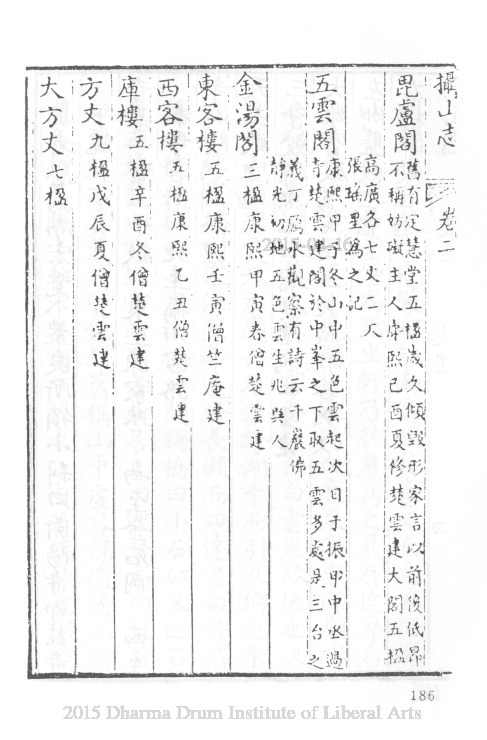 攝山志
卷二
毘盧閣 舊有定慧堂五楹歲久傾毀形家言以前後低昂
不稱妨礙主人康熙己酉夏修楚雲建大閣五楹
高廣各七丈二尺
張瑤星為之記
五雲閣 康熙甲子冬山中五色雲起次日于振甲中丞過
寺楚雲建閣於中峯之下取五雲多處是三台之
義丁鴈水觀察有詩云千巖佛
靜光初地五色雲生兆與人
金湯閣 三楹康熙甲寅春僧楚雲建
東客樓 五楹康熙壬寅僧竺庵建
西客樓 五楹康熙乙丑僧楚雲建
庫樓 五楹辛酉冬僧楚雲建
方丈 九楹戊辰夏僧楚雲建
大方丈 七楹
186
2015 Dharma Drum Institute of Liberal Arts